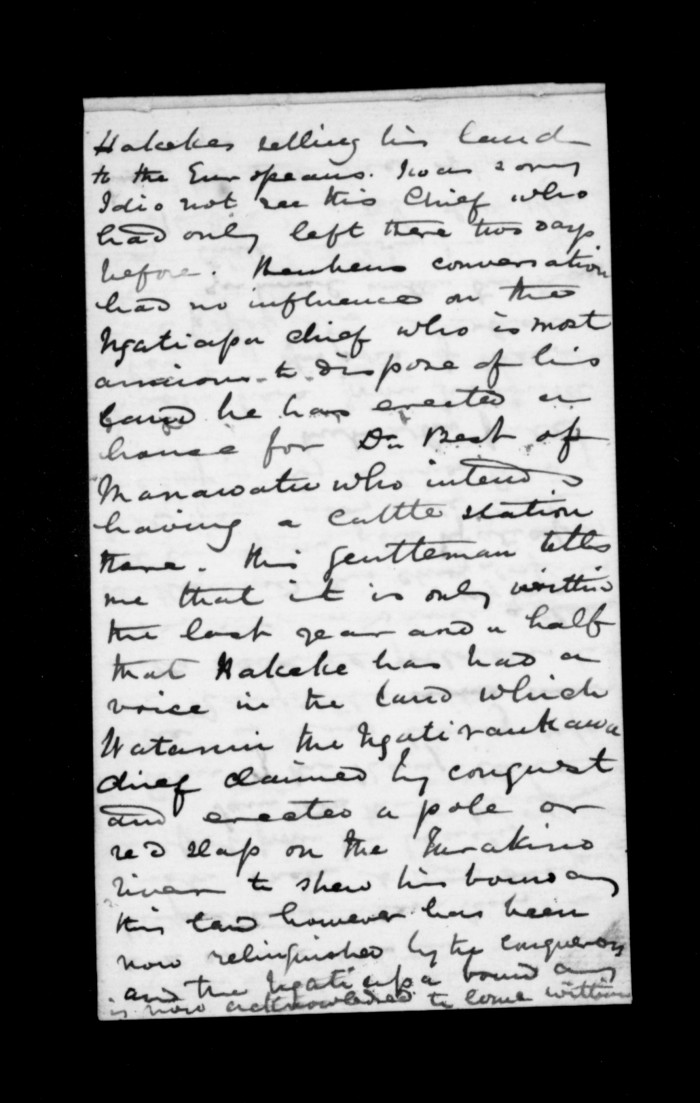 Hakekes selling his land
to the Europeans. I was sorry
I did not see this Chief who
had only left there two days
before. conversation
had no influence on the
Ngatiapa chief who is most
anxious to dispose of his
land he has erected a
house for Dn Best of
Manawatu who intends
having a cattle station
there. This gentleman tells
me that it is only within
the last year and a half
that Hakeke has had a
voice in the land which
Watanui the Ngatiraukawa
chief claimed by conquest
and erected a pole or
red on the Turakino
river to shew his boundary
this land however has been
now relinquished by the conquerors
and the Ngatiapa boundary
is now acknowledged to come within